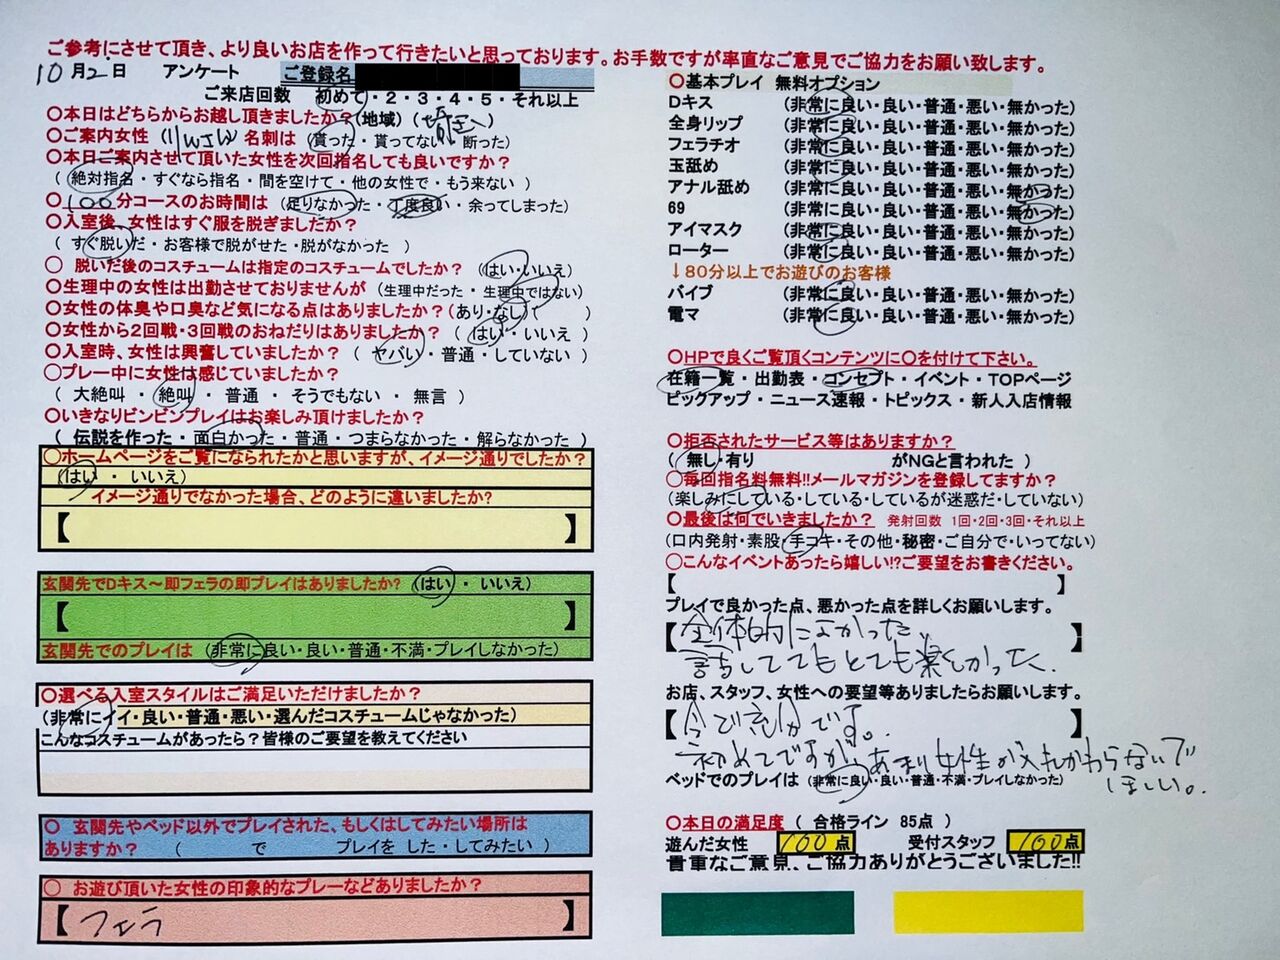 ご参考にさせて頂き、より良いお店を作って行きたいと思っております。お手数ですが率直なご意見でご協力をお願い致します。
10月2日 アンケート ご登録名
ご来店回数 初めて・2・3・4・5・それ以上
〇本日はどちらからお越し頂きましたか?(地域) (埼玉)
〇ご案内女性 ( ) 名刺は (貰った・貰ってない・断った)
〇本日ご案内させて頂いた女性を次回指名しても良いですか?
( 絶対指名・すぐなら指名・間を空けて・他の女性で・もう来ない )
〇100分コースのお時間は (足りなかった・丁度良い・余ってしまった)
〇入室後、女性はすぐ服を脱ぎましたか?
( すぐ脱いだ・お客様で脱がせた・脱がなかった )
〇 脱いだ後のコスチュームは指定のコスチュームでしたか? (はい・いいえ)
〇生理中の女性は出勤させておりませんが (生理中だった・生理中ではない)
〇女性の体臭や口臭など気になる点はありましたか?(あり・なし)( )
〇女性から2回戦・3回戦のおねだりはありましたか? ( はい・いいえ )
〇入室時、女性は興奮していましたか? ( ヤバい・普通・していない )
〇プレー中に女性は感じていましたか?
( 大絶叫・絶叫・普通・そうでもない・無言 )
〇いきなりビンビンプレイはお楽しみ頂けましたか?
( 伝説を作った・面白かった・普通・つまらなかった・解らなかった )
〇ホームページをご覧になられたかと思いますが、イメージ通りでしたか?
(はい・いいえ)
イメージ通りでなかった場合、どのように違いましたか?
【 】
玄関先でDキス〜即フェラの即プレイはありましたか? (はい・いいえ)
【 】
玄関先でのプレイは (非常に良い・良い・普通・不満・プレイしなかった)
〇選べる入室スタイルはご満足いただけましたか?
(非常にイイ・良い・普通・悪い・選んだコスチュームじゃなかった)
こんなコスチュームがあったら?皆様のご要望を教えてください
〇 玄関先やベッド以外でプレイされた、もしくはしてみたい場所は
ありますか? ( で プレイを した・してみたい )
〇 お遊び頂いた女性の印象的なプレーなどありましたか?
【フェラ】
〇基本プレイ 無料オプション
Dキス (非常に良い・良い・普通・悪い・無かった)
全身リップ (非常に良い・良い・普通・悪い・無かった)
フェラチオ (非常に良い・良い・普通・悪い・無かった)
玉舐め (非常に良い・良い・普通・悪い・無かった)
アナル舐め (非常に良い・良い・普通・悪い・無かった)
69 (非常に良い・良い・普通・悪い・無かった)
アイマスク (非常に良い・良い・普通・悪い・無かった)
ローター (非常に良い・良い・普通・悪い・無かった)
↓80分以上でお遊びのお客様
バイブ (非常に良い・良い・普通・悪い・無かった)
電マ (非常に良い・良い・普通・悪い・無かった)
〇HPで良くご覧頂くコンテンツに〇を付けて下さい。
在籍一覧・出勤表・コンセプト・イベント・TOPページ
ピックアップ・ニュース速報・トピックス・新人入店情報
〇拒否されたサービス等はありますか?
( 無し・有り がNGと言われた )
〇毎回指名料無料!!メールマガジンを登録してますか?
(楽しみにしている・している・しているが迷惑だ・していない)
〇最後は何でいきましたか? 発射回数 1回・2回・3回・それ以上
(口内発射・素股・手コキ・その他・秘密・ご自分で・いってない)
〇こんなイベントあったら嬉しい!?ご要望をお書きください。
【 】
プレイで良かった点、悪かった点を詳しくお願いします。
【全体的によかった。
話ししててもとても楽しかった。】
お店、スタッフ、女性への要望等ありましたらお願いします。
【今で充分です。
初めてですが、あまり女性が入れかわらないで
ほしい。】
ベッドでのプレイは (非常に良い・良い・普通・不満・プレイしなかった)
〇本日の満足度 ( 合格ライン 85点 )
遊んだ女性 100点 受付スタッフ 100点
貴重なご意見、ご協力ありがとうございました!!